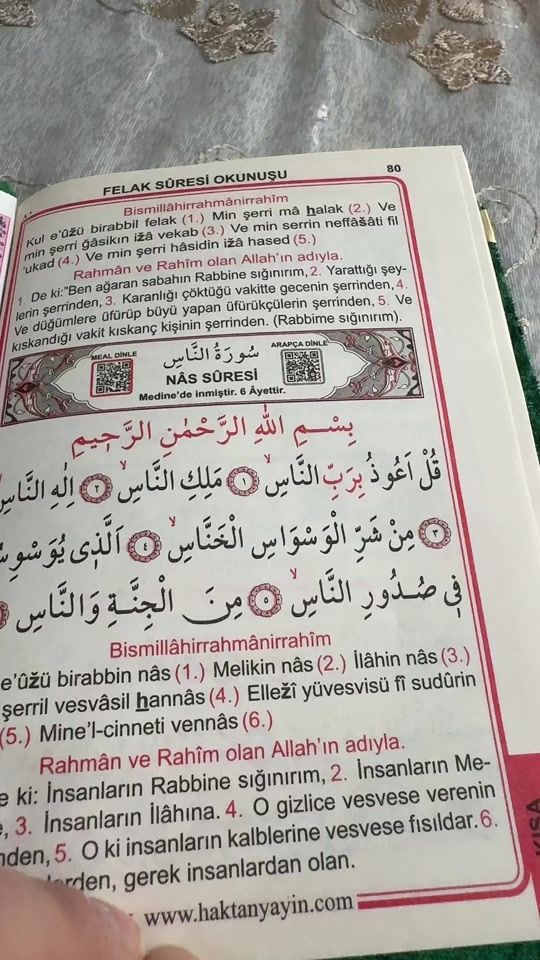 FELAK SÛRESİ OKUNUŞU 80
Bismillâhirrahmânirrahîm
Kul e'ûžü birabbil felak (1.) Min şerri mâ halak (2.) Ve
min şerri ğâsikın ižâ vekab (3.) Ve min serrin neffâšâti fil
'ukad (4.) Ve min şerri hâsidin ižâ hased (5.)
Rahmân ve Rahîm olan Allah'ın adıyla.
1. De ki:"Ben ağaran sabahın Rabbine sığınırım, 2. Yarattığı şey-
lerin şerrinden, 3. Karanlığı çöktüğü vakitte gecenin şerrinden, 4.
Ve düğümlere üfürüp büyü yapan üfürükçülerin şerrinden, 5. Ve
kıskandığı vakit kıskanç kişinin şerrinden. (Rabbime sığınırım).
MEAL DİNLE سُورَةُ النَّاسِ ARAPÇA DİNLE
NÂS SÛRESİ
Medine'de inmiştir. 6 Âyettir.
بِسْمِ اللهِ الرَّحْمٰنِ الرَّحِيمِ
قُلْ اَعُوذُ بِرَبِّ النَّاسِۙ ﴿١﴾ مَلِكِ النَّاسِۙ ﴿٢﴾ اِلٰهِ النَّاسِ
﴿٣﴾ مِنْ شَرِّ الْوَسْوَاسِ الْخَنَّاسِۙ ﴿٤﴾ اَلَّذِي يُوَسْوِسُ
فِي صُدُورِ النَّاسِۙ ﴿٥﴾ مِنَ الْجِنَّةِ وَالنَّاسِ
Bismillâhirrahmânirrahîm
e'ûžü birabbin nâs (1.) Melikin nâs (2.) İlâhin nâs (3.)
şerril vesvâsil hannâs (4.) Elležî yüvesvisü fî sudûrin
(5.) Mine'l-cinneti vennâs (6.)
Rahmân ve Rahîm olan Allah'ın adıyla.
e ki: İnsanların Rabbine sığınırım, 2. İnsanların Me-
, 3. İnsanların İlâhına. 4. O gizlice vesvese verenin
nden, 5. O ki insanların kalblerine vesvese fısıldar. 6.
lerden, gerek insanlardan olan.
www.haktanyayin.com
KISA